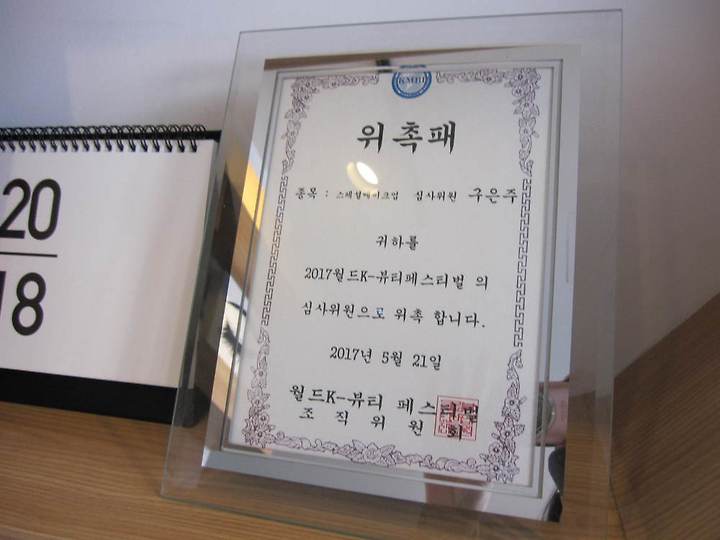 20
18
위촉패
종목 : 스페셜메이크업 심사위원 구은주
귀하를
2017월드K-뷰티페스티벌 의
심사위원으로 위촉 합니다.
2017년 5월 21일
월드K-뷰티 페스티벌
조직위원회